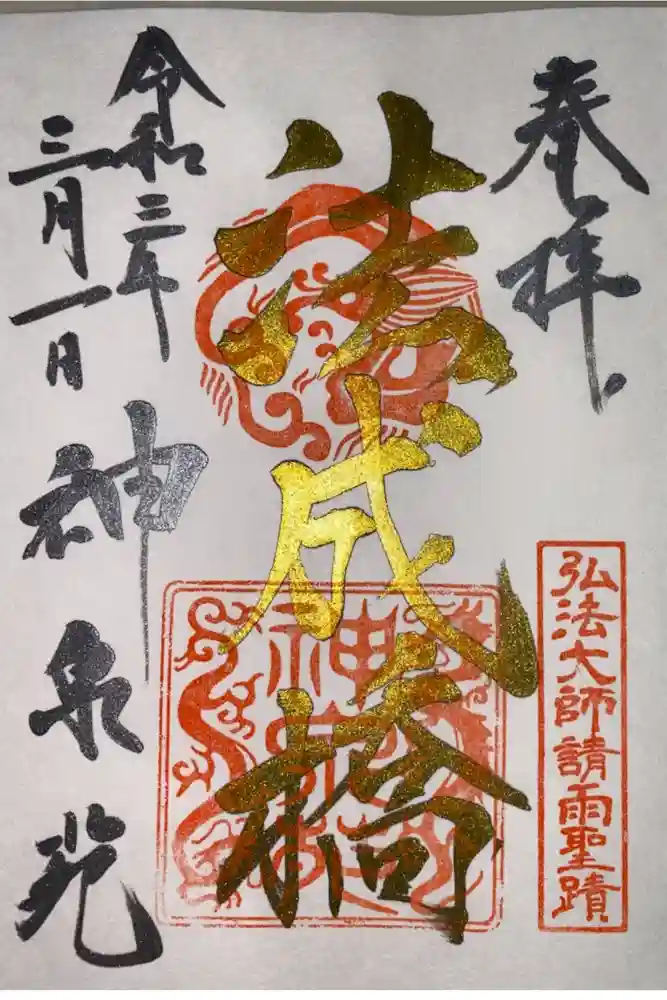 奉拝
弘法大師請雨聖蹟
法成橋
令和三年
三月一日
神泉苑